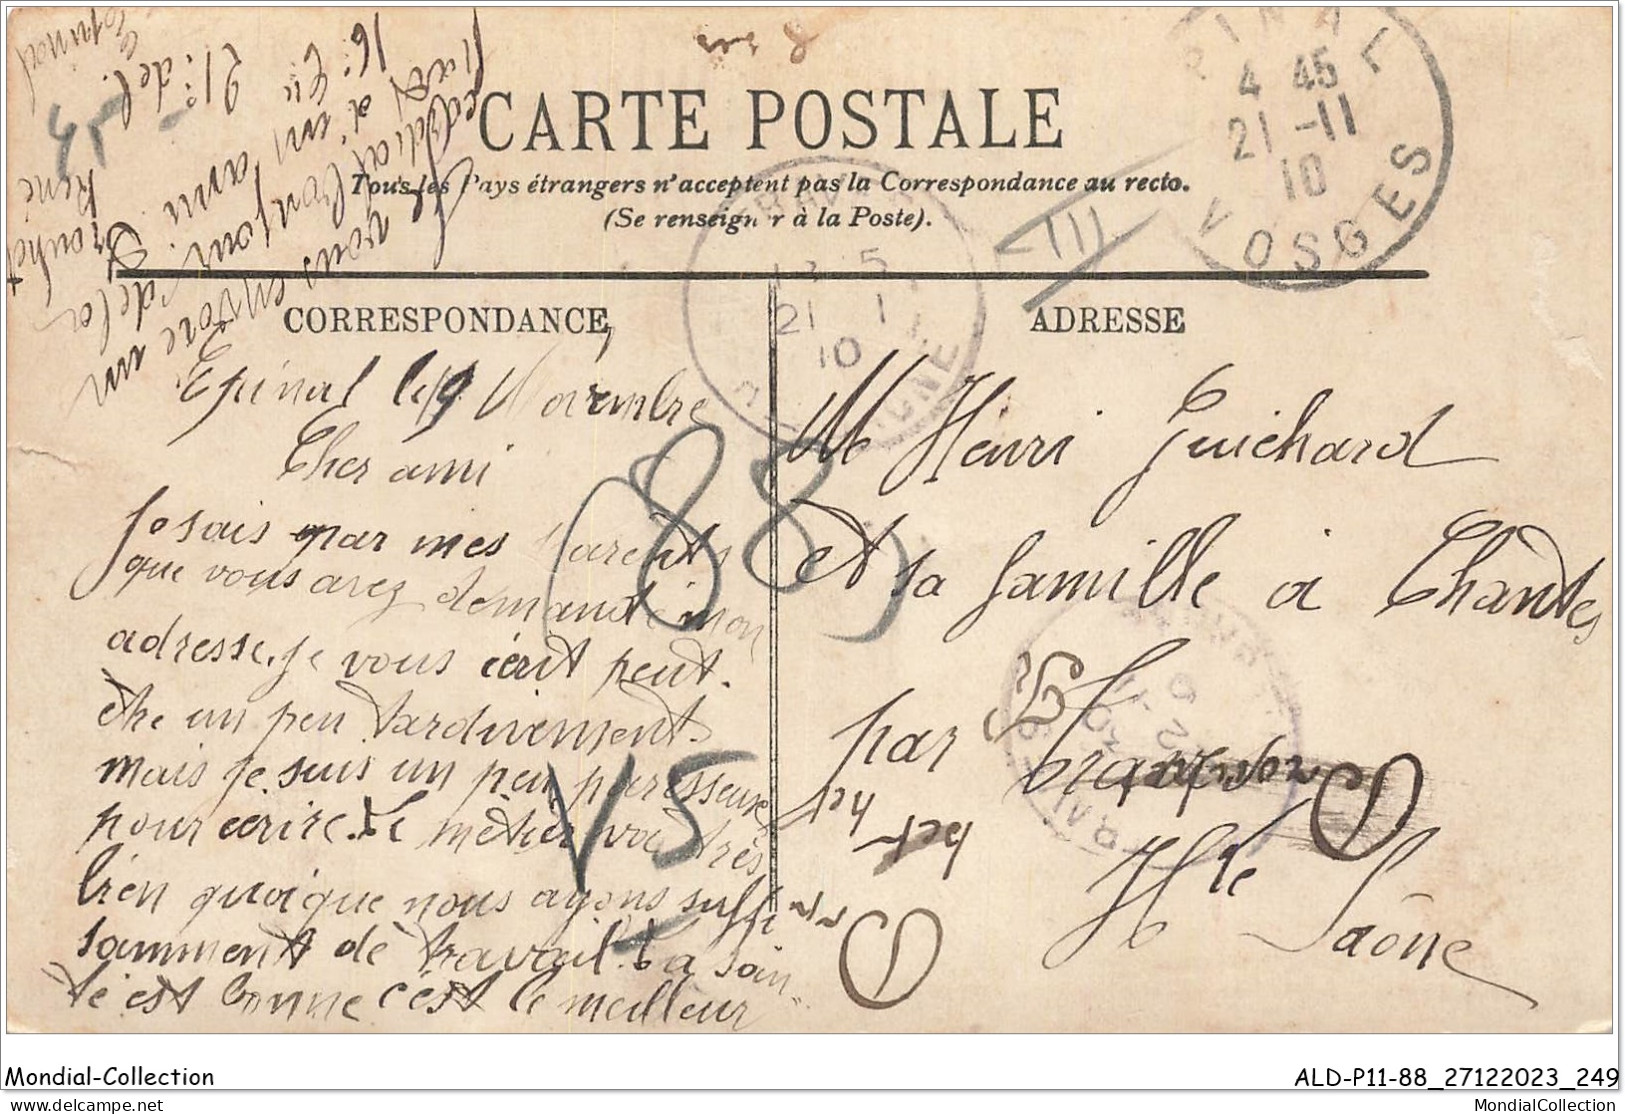 CARTE POSTALE
Tous les Pays étrangers n'acceptent pas la Correspondance au recto.
(Se renseigner à la Poste).
CORRESPONDANCE
ADRESSE
PINAL
4 45
21 -11
10
VOSGES
21
10
Epinal le 19 Novembre
Cher ami
Je sais par mes parents
que vous avez demandé mon
adresse. je vous écrit peut.
être un peu tardivement.
mais je suis un peu paresseuse
pour écrire. Le métier va très
bien quoique nous ayons suffi
samment de travail. La san-
té est bonne c'est le meilleur
Je vous envoie un
cordial bonjour de la
part d'un ami.
René
16e
21e
Epinal
(88)
VS
M Henri Guichard
et sa famille à Chantes
par
Hte Saône
Mondial-Collection
ALD-P11-88_27122023_249
www.delcampe.net
MondialCollection